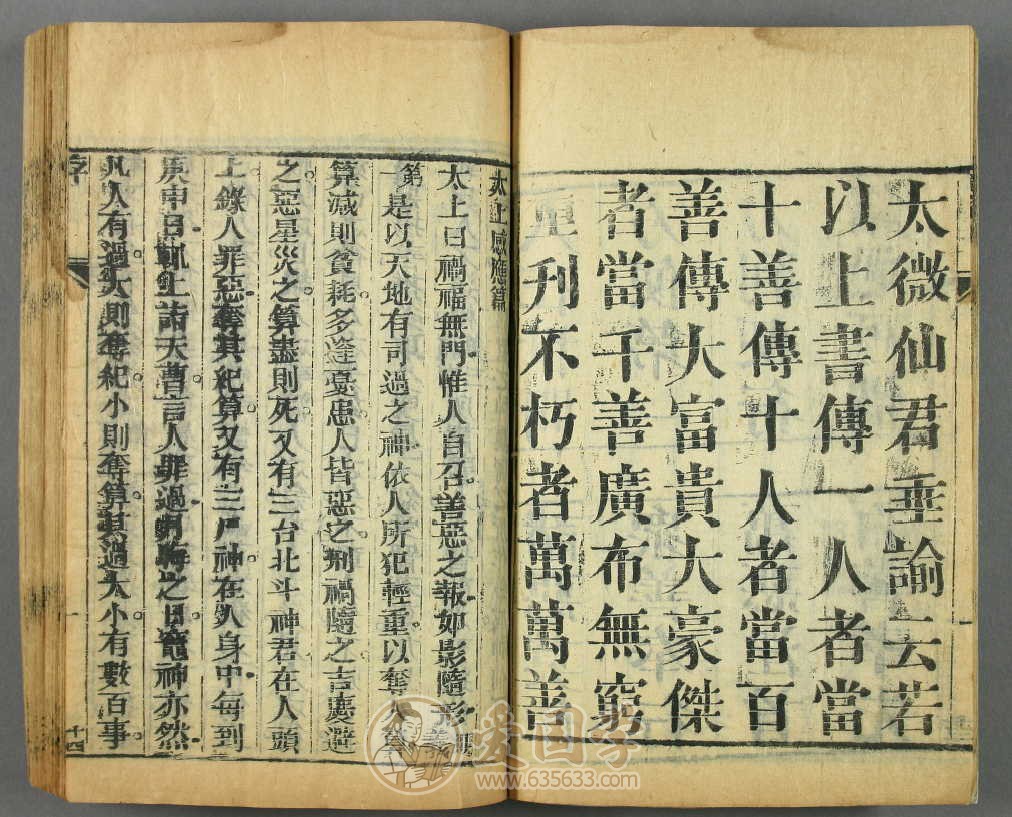 太微仙君垂諭云若
以上書傳一人者當
十善傳十人者當百
善傳大富貴大豪傑
者當千善廣布無窮
重刋不朽者萬萬善
太上感應篇
太上曰禍福無門惟人自召善惡之報如影隨形
是以天地有司過之神依人所犯輕重以奪人算
算減則貧耗多逢憂患人皆惡之刑禍隨之吉慶避
之惡星災之算盡則死又有三台北斗神君在人頭
上錄人罪惡奪其紀算又有三尸神在人身中每到
庚申日輒上詣天曹言人罪過月晦之日竈神亦然
凡人有過大則奪紀小則奪算其過大小有數百事
序
十四
愛国学
www.635633.com